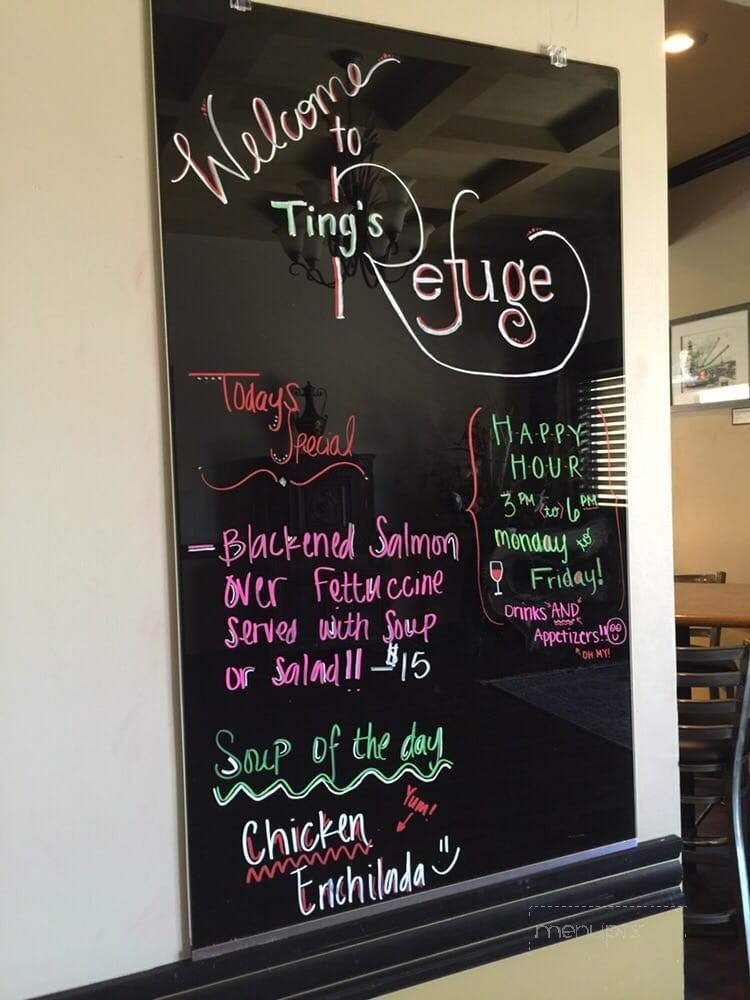 Welcome
to
Ting's
Refuge
Todays
Special
- Blackened Salmon
over Fettuccine
Served with Soup
or Salad!! - $15
Soup of the day
Chicken
Yum!
Enchilada
H·A·P·P·Y
H·O·U·R
3 PM (to) 6 PM
monday to
Friday!
Drinks AND
Appetizers!!
OH MY!
menupix